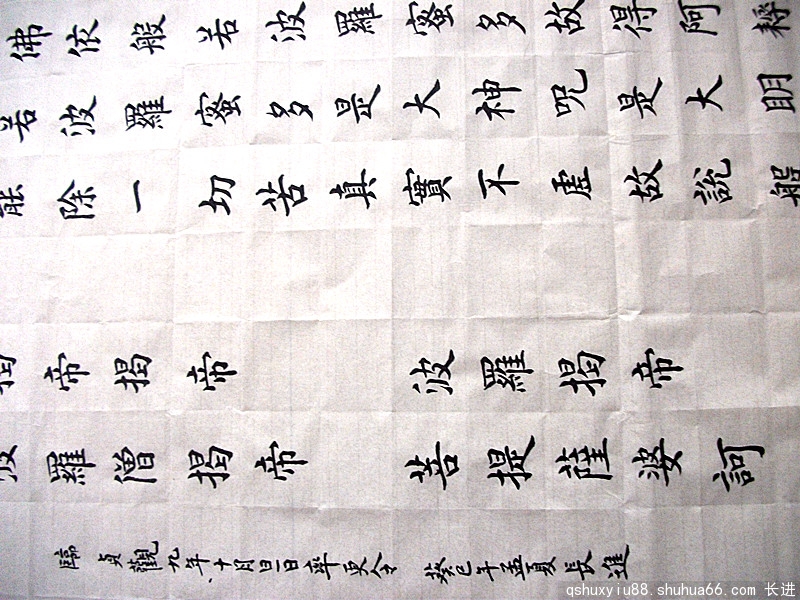 佛依般若波羅蜜多故得阿耨
若波羅蜜多是大神呪是大眀
能除一切苦真實不虛故說般
揭帝揭帝 波羅揭帝
波羅僧揭帝 菩提薩婆訶
臨貞觀九年十月旦日率更令 癸巳年孟夏長進
qshuxyiu88.shuhua66.com 长进